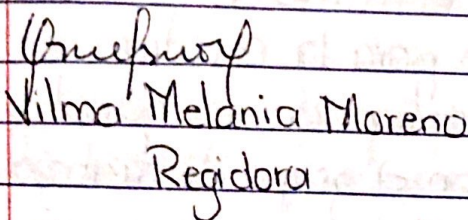 Vilma Melania Moreno
Regidora